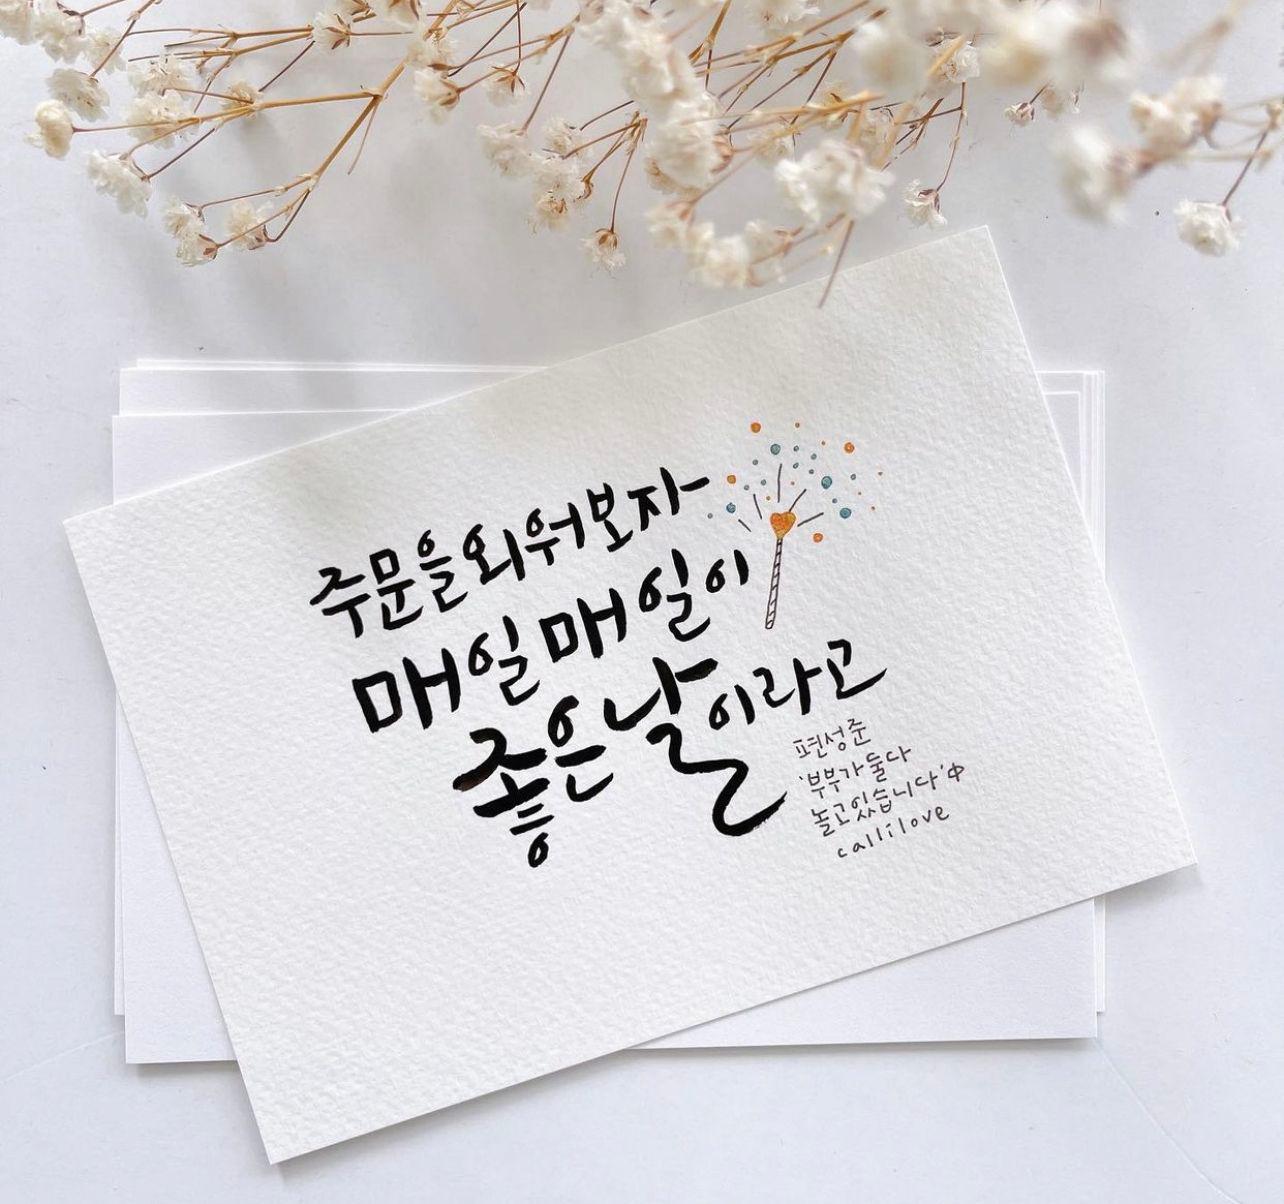 주문을 외워보자
매일매일이
좋은 날이라고
편성준
'부부가 둘다
놀고 있습니다' 中
callilove